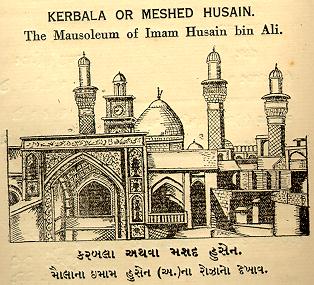 KERBALA OR MESHED HUSAIN.
The Mausoleum of Imam Husain bin Ali.
કરબલા અથવા મશદ હુસેન.
મૌલાના ઇમામ હુસેન (અ.)ના રોઝાનો દેખાવ.